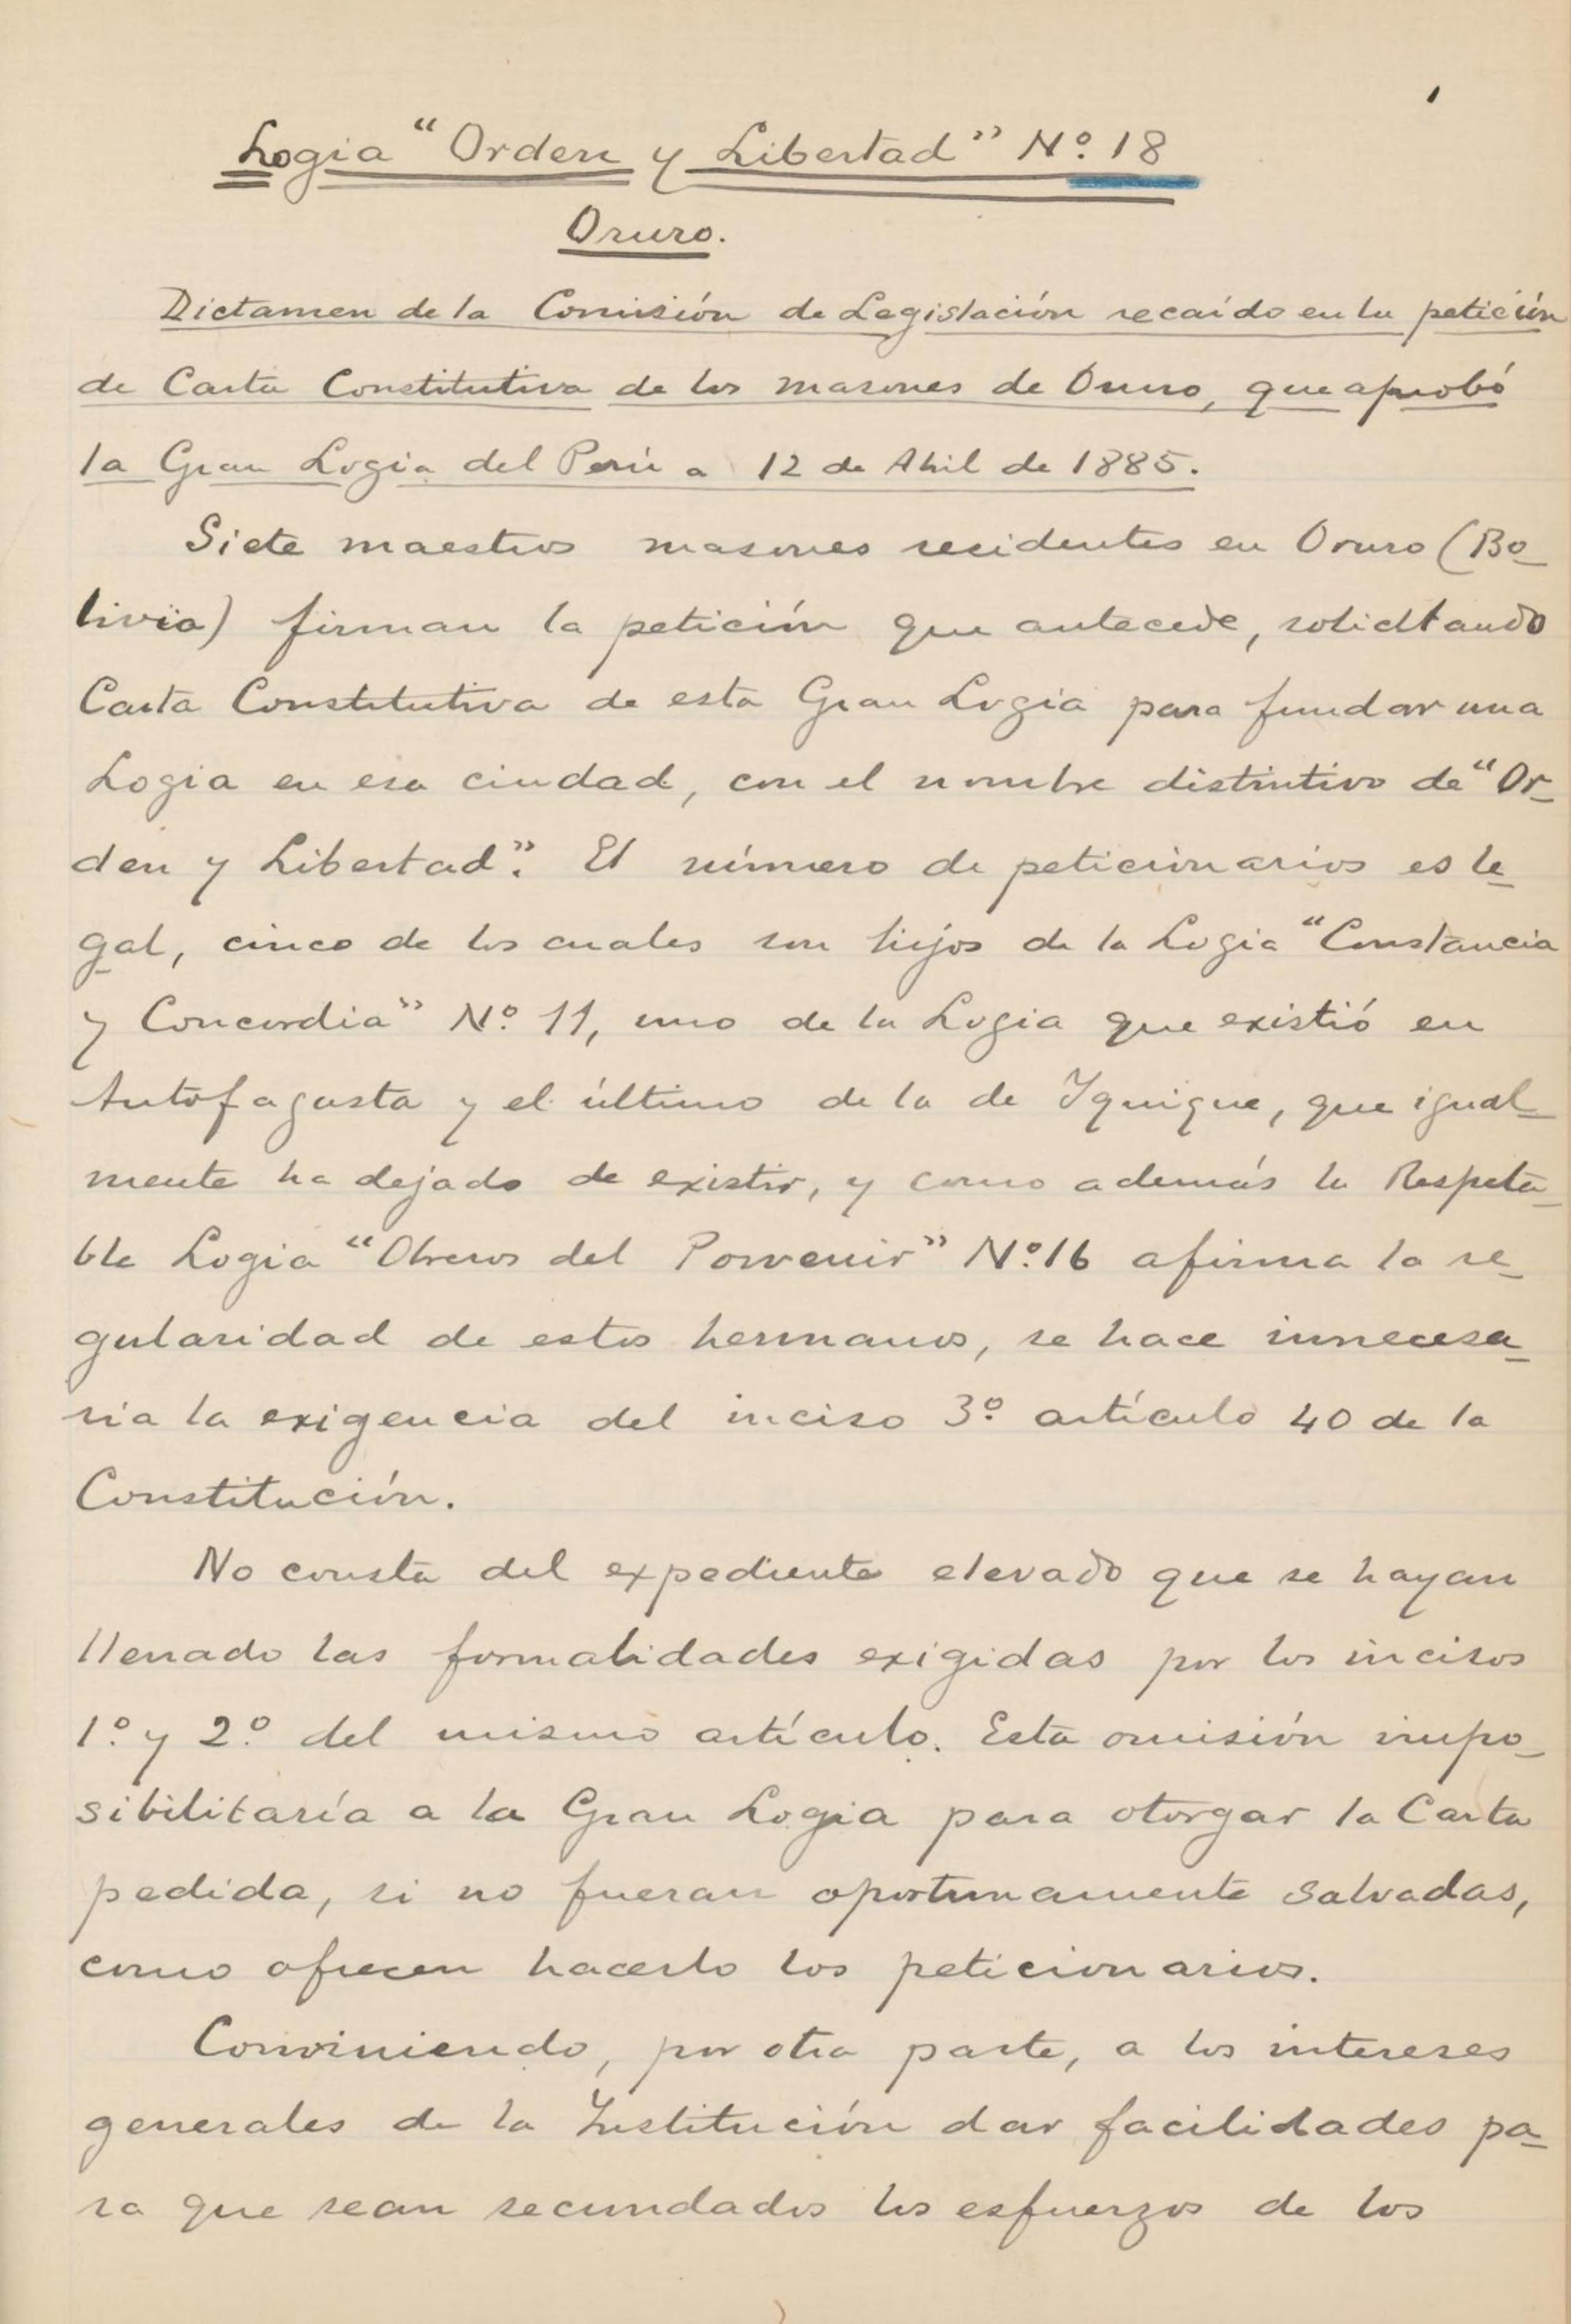 Logia "Orden y Libertad" Nº 18
Oruro.
Dictamen de la Comisión de Legislación recaído en la petición
de Carta Constitutiva de los masones de Oruro, que aprobó
la Gran Logia del Perú a 12 de Abril de 1885.
Siete maestros masones residentes en Oruro (Bo-
livia) firman la petición que antecede, solicitando
Carta Constitutiva de esta Gran Logia para fundar una
Logia en esa ciudad, con el nombre distintivo de "Or-
den y Libertad". El número de peticionarios es le-
gal, cinco de los cuales son hijos de la Logia "Constancia
y Concordia" Nº 11, uno de la Logia que existió en
Antofagasta y el último de la de Iquique, que igual-
mente ha dejado de existir, y como además la Respeta-
ble Logia "Obreros del Porvenir" Nº 16 afirma la re-
gularidad de estos hermanos, se hace innecesa-
ria la exigencia del inciso 3º artículo 40 de la
Constitución.
No consta del expediente elevado que se hayan
llenado las formalidades exigidas por los incisos
1º y 2º del mismo artículo. Esta omisión impo-
sibilitaría a la Gran Logia para otorgar la Carta
pedida, si no fueran oportunamente salvadas,
como ofrecen hacerlo los peticionarios.
Conviniendo, por otra parte, a los intereses
generales de la Institución dar facilidades pa-
ra que sean secundados los esfuerzos de los